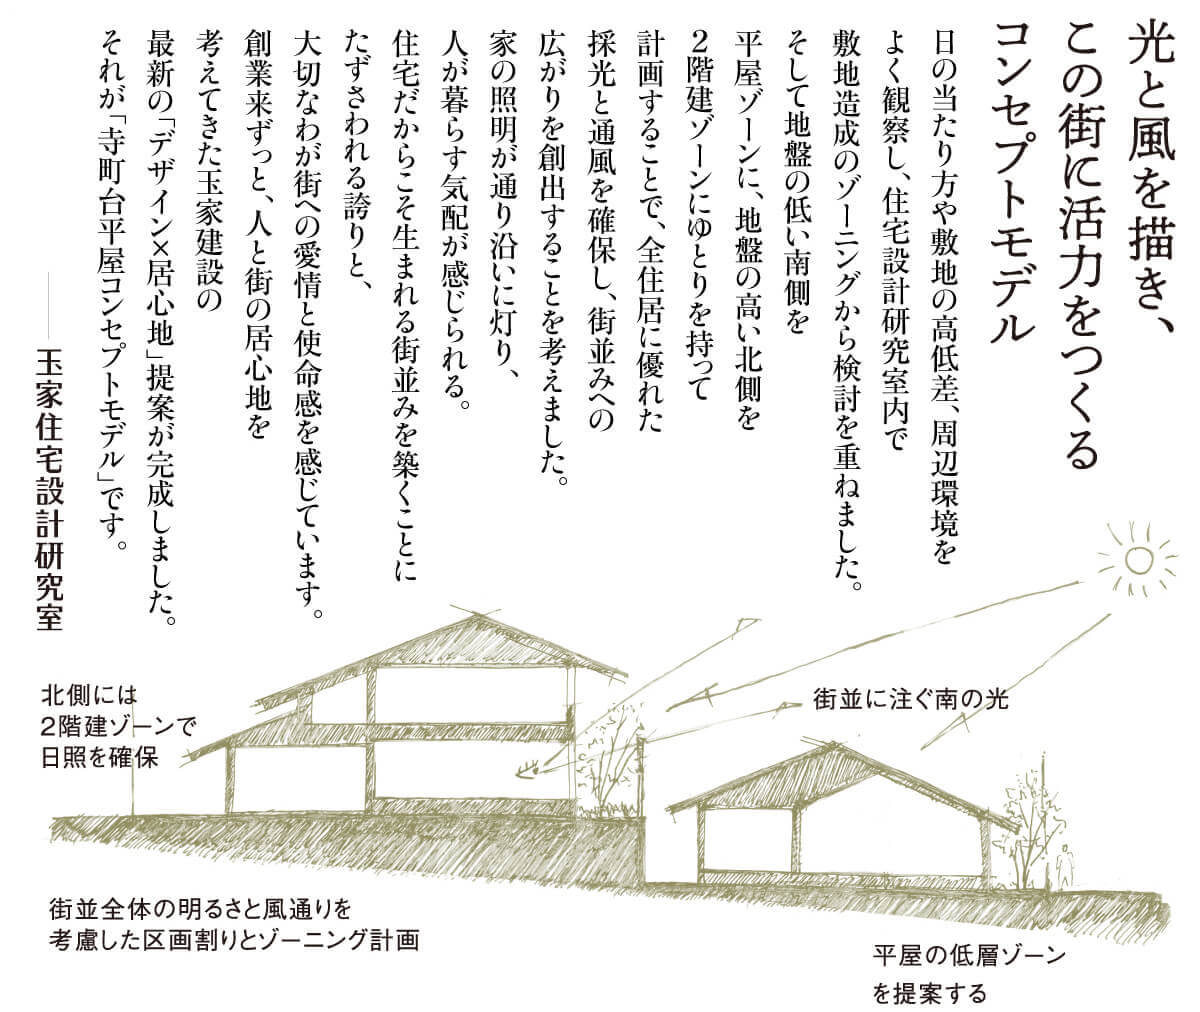 光と風を描き、
この街に活力をつくる
コンセプトモデル
日の当たり方や敷地の高低差、周辺環境を
よく観察し、住宅設計研究室内で
敷地造成のゾーニングから検討を重ねました。
そして地盤の低い南側を
平屋ゾーンに、地盤の高い北側を
2階建ゾーンにゆとりを持って
計画することで、全住居に優れた
採光と通風を確保し、街並みへの
広がりを創出することを考えました。
家の照明が通り沿いに灯り、
人が暮らす気配が感じられる。
住宅だからこそ生まれる街並みを築くことに
たずさわれる誇りと、
大切なわが街への愛情と使命感を感じています。
創業来ずっと、人と街の居心地を
考えてきた玉家建設の
最新の「デザイン×居心地」提案が完成しました。
それが「寺町台平屋コンセプトモデル」です。
――玉家住宅設計研究室
街並に注ぐ南の光
北側には
2階建ゾーンで
日照を確保
街並全体の明るさと風通りを
考慮した区画割りとゾーニング計画
平屋の低層ゾーン
を提案する